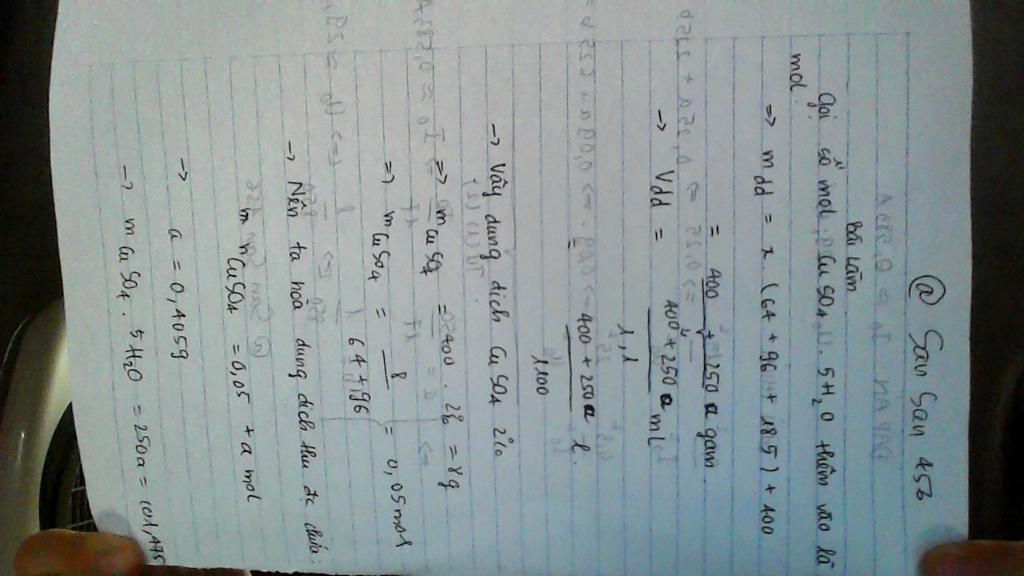 @ San San 456
Bài làm
Gọi số mol CuSO4. 5H2O thêm vào là
mol.
=> mdd = x (64 + 96 + 18.5) + 400
= 400 + 250a gam
-> Vdd = 400 + 250a / 1,1 ml
= 400 + 250a / 1100 l.
-> Vậy dung dịch CuSO4 2%
=> mCuSO4 = 400 . 2% = 8g
=> mCuSO4 = 8 / 64 + 96 = 0,05 mol
-> Nên ta hoà dung dịch thu đc chứa:
nCuSO4 = 0,05 + a mol
-> a = 0,4059
-> mCuSO4. 5H2O = 250a = 101,475